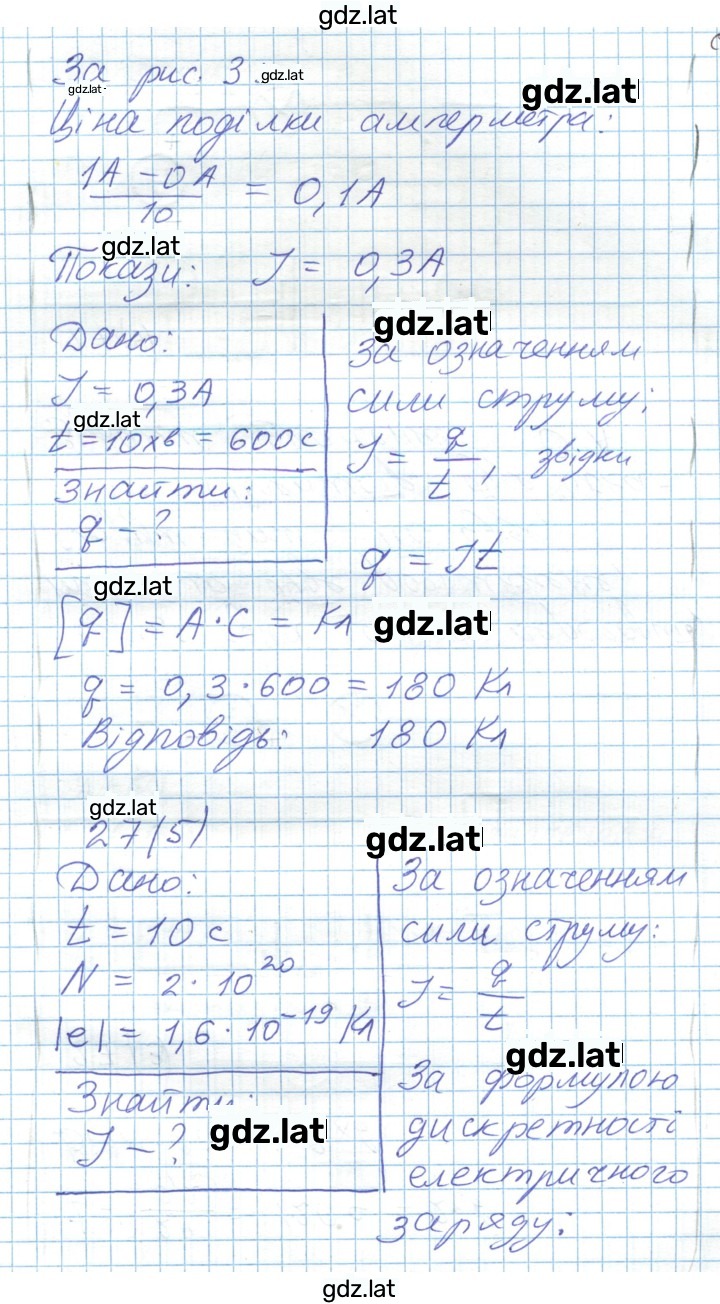 gdz.lat
За рис. 3 gdz.lat
gdz.lat gdz.lat
Ціна поділки амперметра:
1А - 0А
10
= 0,1А
gdz.lat
Покази: I = 0,3А
gdz.lat
Дано:
I = 0,3А
gdz.lat
t = 10хв = 600с
Знайти:
q - ?
За означенням
сили струму:
I = q/t, звідки
q = It
gdz.lat
[q] = А·С = Кл gdz.lat
q = 0,3·600 = 180 Кл
Відповідь: 180 Кл
gdz.lat
27(5)
gdz.lat
Дано:
t = 10 с
N = 2·10²⁰
|e| = 1,6·10⁻¹⁹ Кл
Знайти:
I - ?
gdz.lat
За означенням
сили струму:
I = q/t
gdz.lat
За формулою
дискретності
електричного
заряду:
gdz.lat